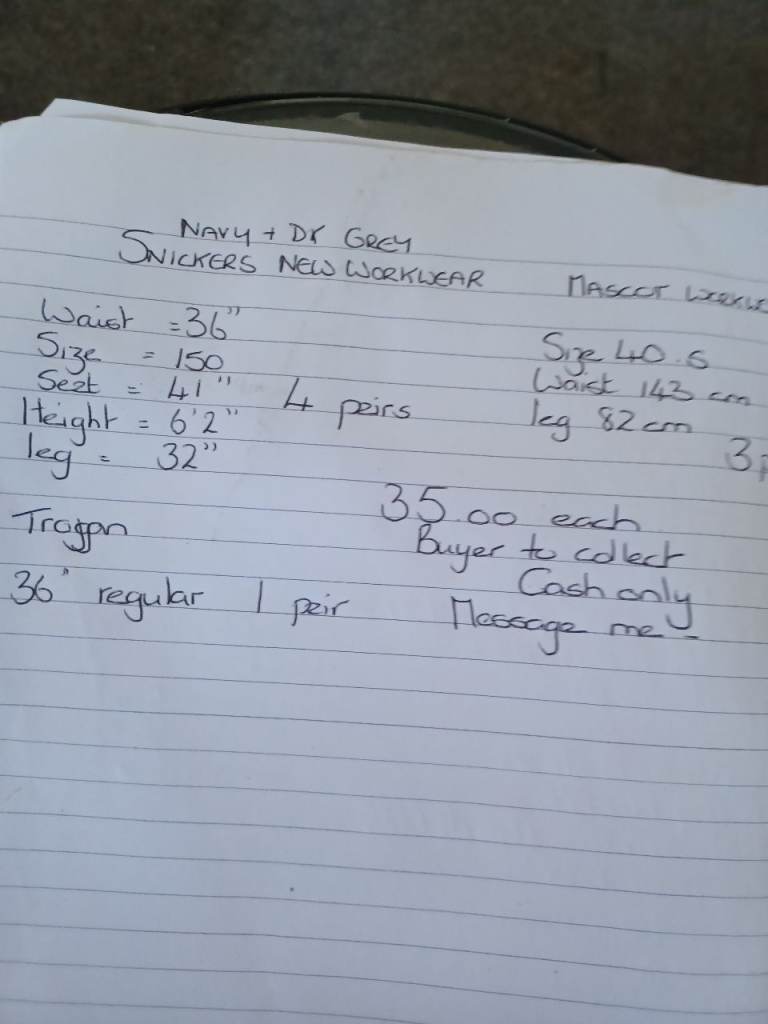 NAVY + DK GREY
SNICKERS NEW WORKWEAR
Waist = 36"
Size = 150
Seat = 41" 4 peirs
Height = 6'2"
leg = 32"
MASCOT
Size 40.5
Waist 143 cm
leg 82 cm
3
35.00 each
Buyer to collect
Cash only
Message me -
Trojan
36" regular 1 peir